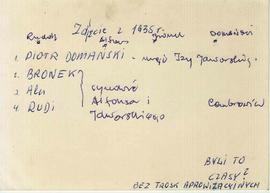 Zdjęcie z 1935 r.
Rudolf Alfons Bronek Domański
1. PIOTR DOMAŃSKI - mąż Izy Jaworskiej.
2. BRONEK
3. Alu
4. RUDI
synowie
Alfonsa i
Jaworskiego
BYLI TO
CZASY!
BEZ TROSK APROWIZACYJNYCH